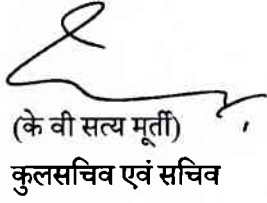 (के वी सत्य मूर्ती)
कुलसचिव एवं सचिव